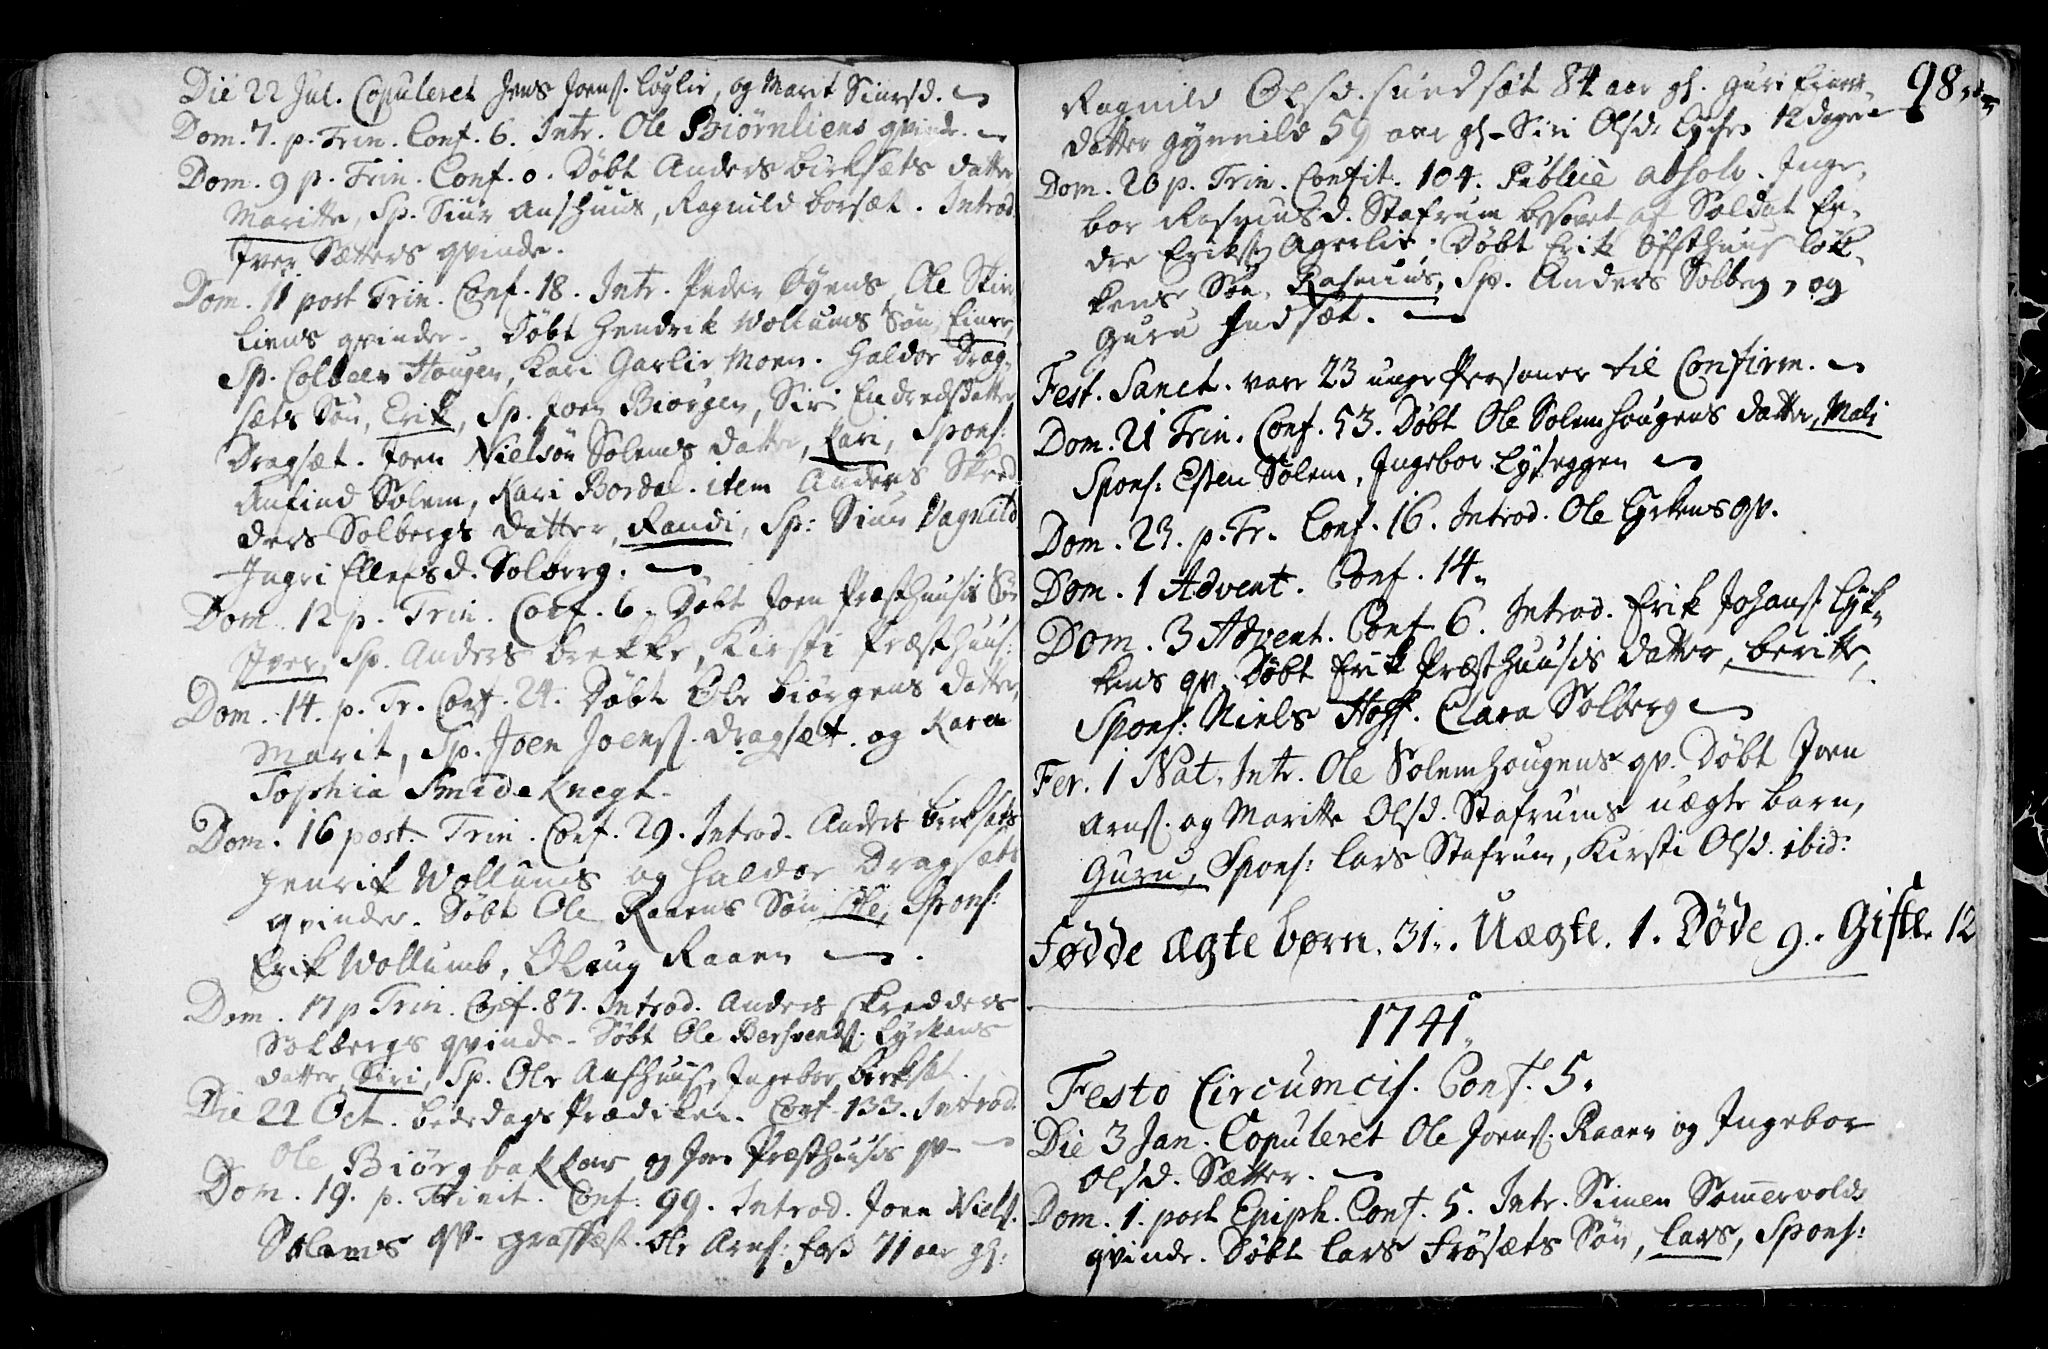 Die 22 Jul. Copuleret Jens Joens. Løglie, og Marit Siursd.
Dom. 7. p. Trin. Conf. 6. Intr. Ole Biørnliens qvinde.
Dom. 9 p. Trin. Conf. 0. Døbt Anders Birksæts datter
Maritte, Sp. Siur Aushuus, Ragnild Borsæt. Introd.
Iver Sætters qvinde.
Dom. 11 post Trin. Conf. 18. Intr. Peder Øyens, Ole
Liens qvinder. Døbt Hendrik Wollums Søn, Einer,
Sp. Colbeen Haugen, Kari Garlie Moen. Haldor Drag-
sæts Søn, Erik, Sp. Joen Biørgen, Siri Endredsdatter
Dragsæt. Joen Nielsøn Solems datter, Kari, Spons:
Anfind Solem, Kari Bordal. item Anders Skred
ders Solbergs datter, Randi, Sp: Siur Vagnild
Ingri Ellefsd. Solberg.
Dom. 12 p. Trin. Conf. 6. Døbt Joen Præsthuusis Søn
Iver, Sp. Anders Brekke, Kirsti Præsthuus:
Dom. 14. p. Tr. Conf. 24. Døbt Ole Biørgens datter,
Marit, Sp. Joen Joens. Dragsæt. og Karen
Sophia Smideknegt.
Dom. 16 post Trin. Conf. 29. Introd. Anders Birksæts
Henrik Wollums og Haldor Dragsæts
qvinder. Døbt Ole Raaens Søn Ole, Spons:
Erik Wollumb, Olaug Raaen
Dom. 17 p Trin. Conf. 87. Introd. Anders Skredders
Solbergs qvinde. Døbt Ole Bersvends. Lyckens
datter, Siri, Sp. Ole Aushuus, Ingebor Birksæt.
Die 22 Oct. Bededags Prædiken. Conf. 133. Introd.
Ole Biørgbakkes og Joen Præsthuusis qv.
Dom. 19. p. Trinit. Conf. 99. Introd. Joen Niels.
Solems qv. Graffæst. Ole Arns: Foss 71 aar gl:
98
Ragnild Olsd. Sundsæt 84 aar gl. Guri Einers-
datter Gynnild 59 aar gl. Siri Olsd. Lycken 12 dage
Dom. 20 p. Trin. Confit. 104. Publice absolv. Inge-
bor Rasmusd. Stafrum besovet af Soldat En-
dre Eriks. Agerlie. Døbt Erik Ofsthuus Løk-
kens Søn, Rasmus, Sp. Anders Solberg, og
Guru Indsæt.
Fest. Sanct. vare 23 unge Personer til Confirm.
Dom. 21 Trin. Conf. 53. Døbt Ole Solemhougens datter, Mali
Spons: Esten Solem, Ingebor Lyseggen
Dom. 23. p. Tr. Conf. 16. Introd. Ole Lyckens qv.
Dom. 1 Advent. Conf. 14.
Dom. 3 Advent. Conf. 6. Introd. Erik Johans. Lyk-
kens qv. Døbt Erik Præsthuusis datter, Beritte,
Spons: Niels Hoff. Clara Solberg
Fer. 1 Nat. Intr. Ole Solemhougens qv. Døbt Joen
Arns. og Maritte Olsd. Stafrums uægte barn,
Guru, Spons: Lars Stafrum, Kirsti Olsd. ibid:
Fødde ægte børn. 31. Uægte. 1. Døde 9. Gifte 12
1741.
Festo Circumcis. Conf. 5.
Die 3 Jan. Copuleret Ole Joens. Raaen og Ingebor
Olsd. Sætter.
Dom. 1. post Epiph. Conf. 5. Intr. Simen Somervolds
qvinde. Døbt Lars Frøsæts Søn, Lars, Spons: